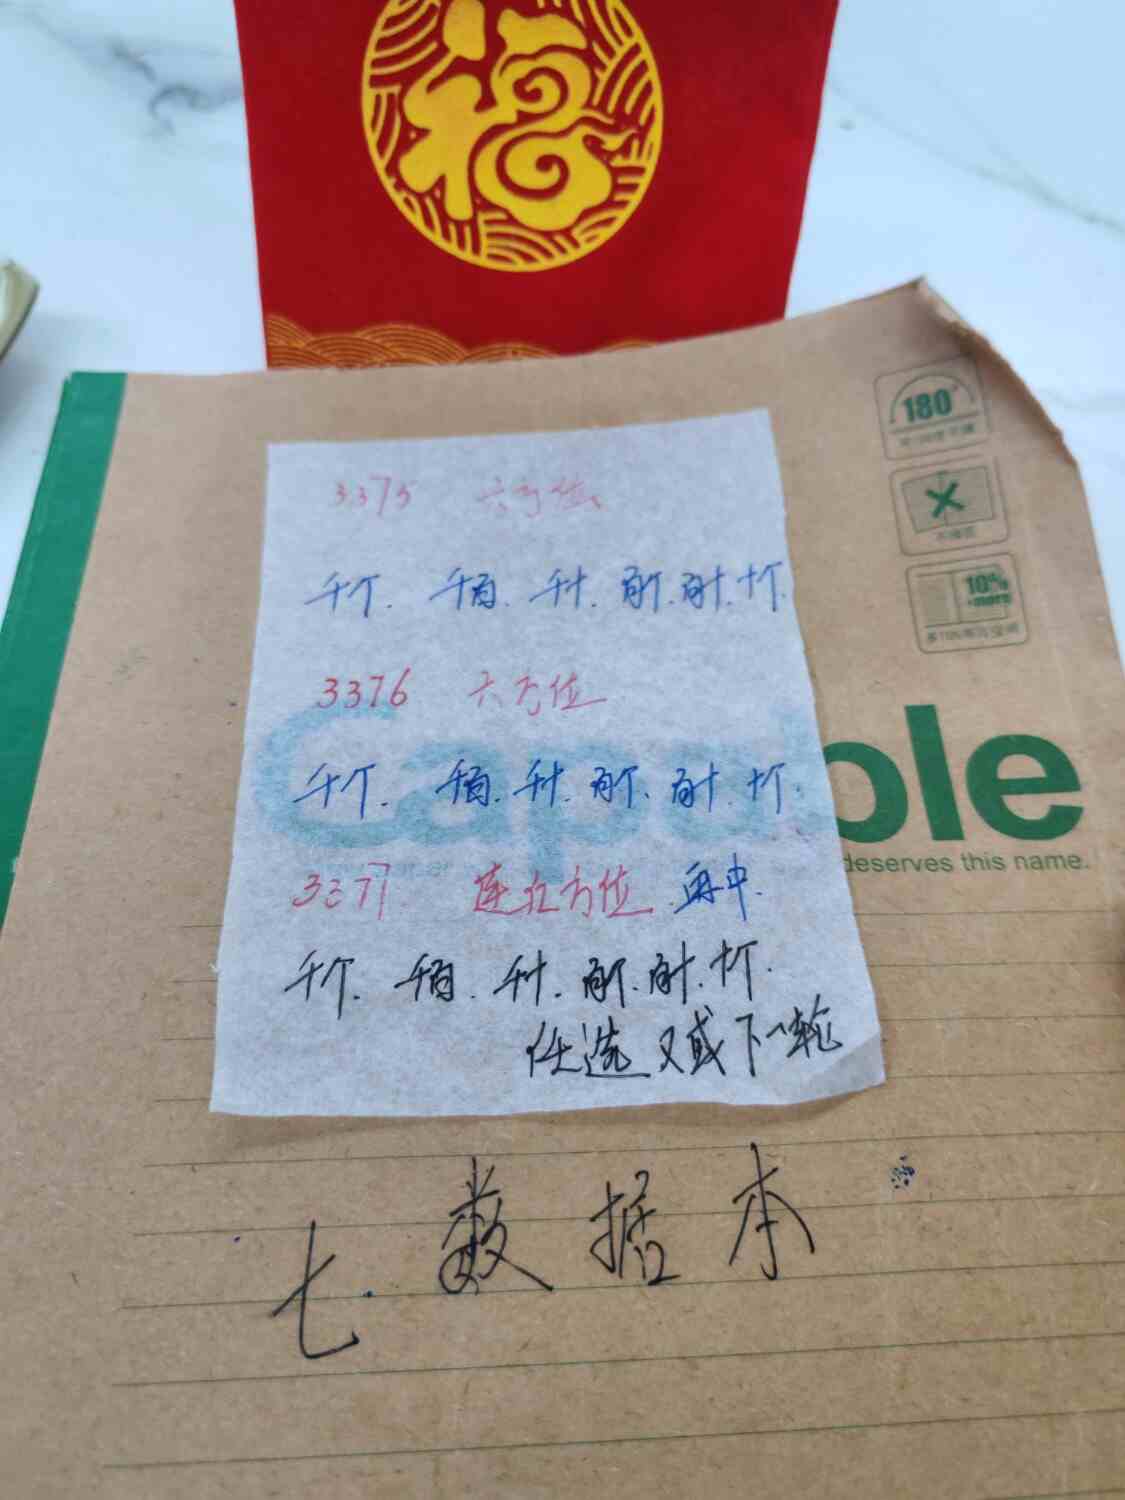 福
180°
10%
+more
3375 六方位
千个. 千百. 千十. 百个. 百十. 十个.
3376 六方位
千个. 千百. 千十. 百个. 百十. 十个.
Capable
deserves this name.
3377. 连红方位 再中.
千个. 千百. 千十. 百个. 百十. 十个.
任选 又或下一轮
七. 数据本